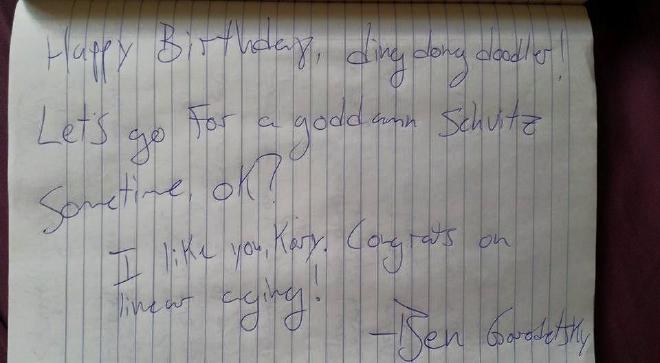 Happy Birthday, ding dong doodler!
Let's go for a goddamn Schvitz
Sometime, OK?
I like you, Kary. Congrats on
linear aging!
-Ben Gorodetsky